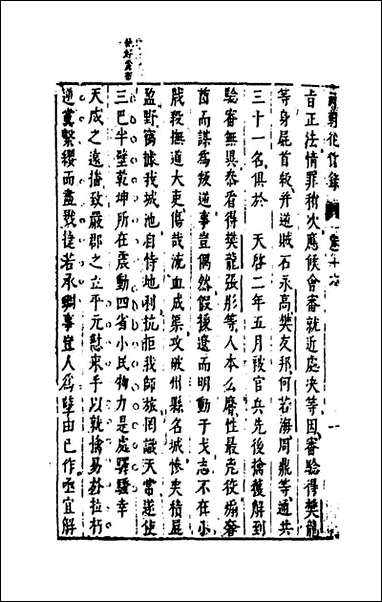 旨正法情罪稍次應候會審就近處决等因審驗得樊龍
等身屍首級并逆賊石永高樊友邦何若海周鼎等通共
三十一名俱於　天啓二年五月被官兵先後擒獲解到
驗審無異叅看得樊龍張彤等人本么麿性最兇從奢
酋而謀爲叛逆事豈偶然假援遼而明動干戈志不在小
戕殺撫道大吏傷哉流血成渠攻破州縣名城慘矣積屍
盈野竊據我城池自恃地利抗拒我師旅罔識天當遂使
三巴半壁乾坤所在震動四省小民物力是處驛騷幸
天成之遠播致嚴郡之立平元憝束手以就擒易於拉朽
逆黨繫纓而盡戮捷若承蜩事豈人爲孽由已作亟宜解